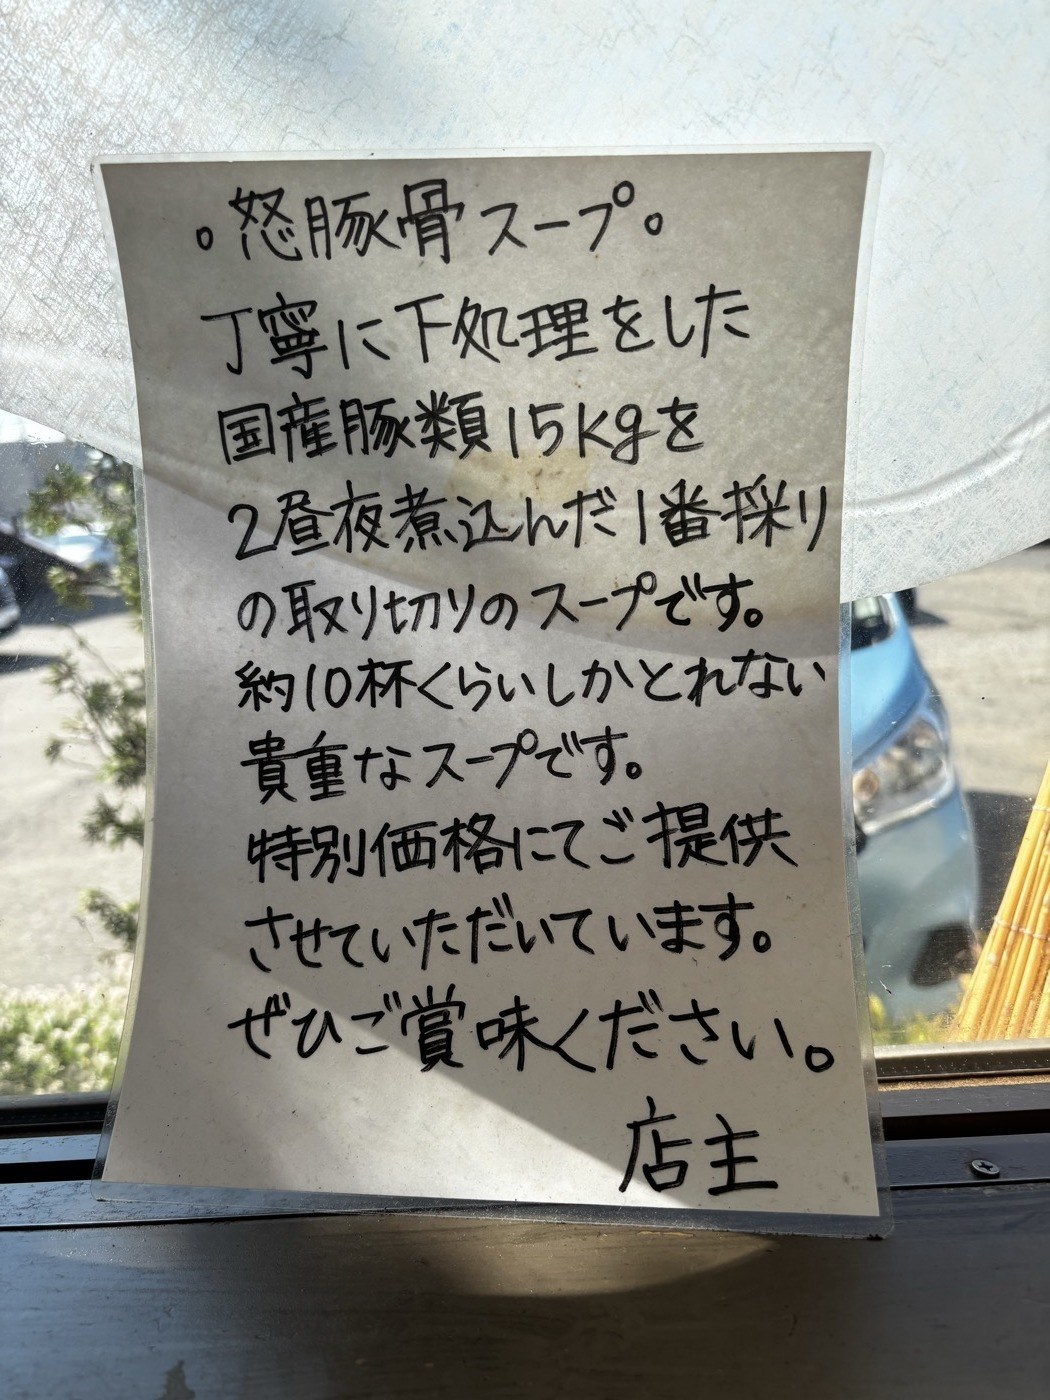 。怒豚骨スープ。
丁寧に下処理をした
国産豚類15kgを
2昼夜煮込んだ1番採り
の取り切りのスープです。
約10杯くらいしかとれない
貴重なスープです。
特別価格にてご提供
させていただいています。
ぜひご賞味ください。
店主